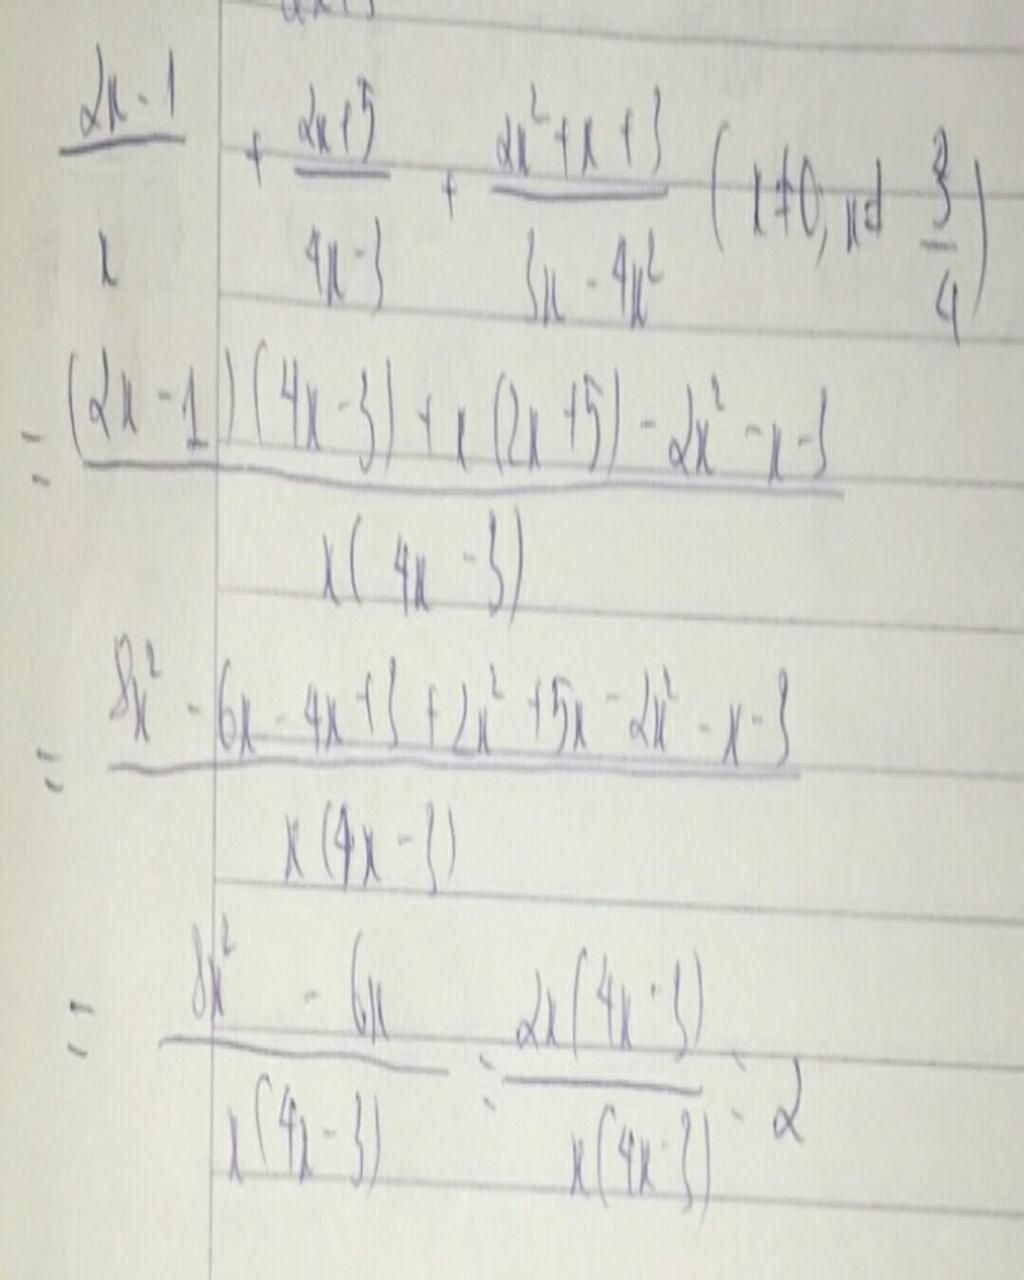 (2x - 1)/x + (2x + 5)/(4x - 3) + (2x² + x + 3)/(3x - 4x²) (x ≠ 0, x ≠ 3/4)
= ((2x - 1)(4x - 3) + x(2x + 5) - 2x² - x - 3)/(x(4x - 3))
= (8x² - 6x - 4x + 3 + 2x² + 5x - 2x² - x - 3)/(x(4x - 3))
= (8x² - 6x)/(x(4x - 3)) = (2x(4x - 3))/(x(4x - 3)) = 2